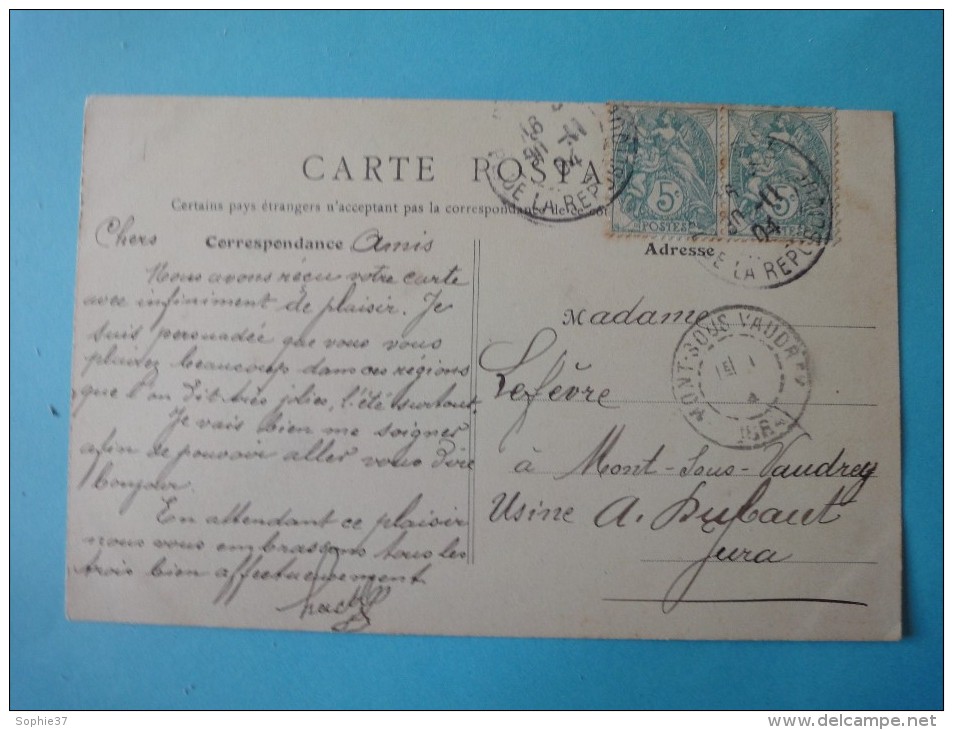 CARTE POSTA
Certains pays étrangers n'acceptent pas la correspondance de ce cô
Chers Correspondance Amis
Nous avons reçu votre carte
avec infiniment de plaisir. Je
suis persuadée que vous vous
plairez beaucoup dans ces régions
que l'on dit très jolies, l'été surtout.
Je vais bien me soigner
afin de pouvoir aller vous dire
bonjour.
En attendant ce plaisir
nous vous embrassons tous les
trois bien affectueusement
5c
POSTES
5c
POSTES
RUE LA REP
04
30 -11
04
DE LA REPUBLIQUE
Adresse
MONT-SOUS-VAUDREY
Madame
Lefèvre
à Mont-Sous-Vaudrey
Usine A.
Jura
Sophie37
www.delcampe.net